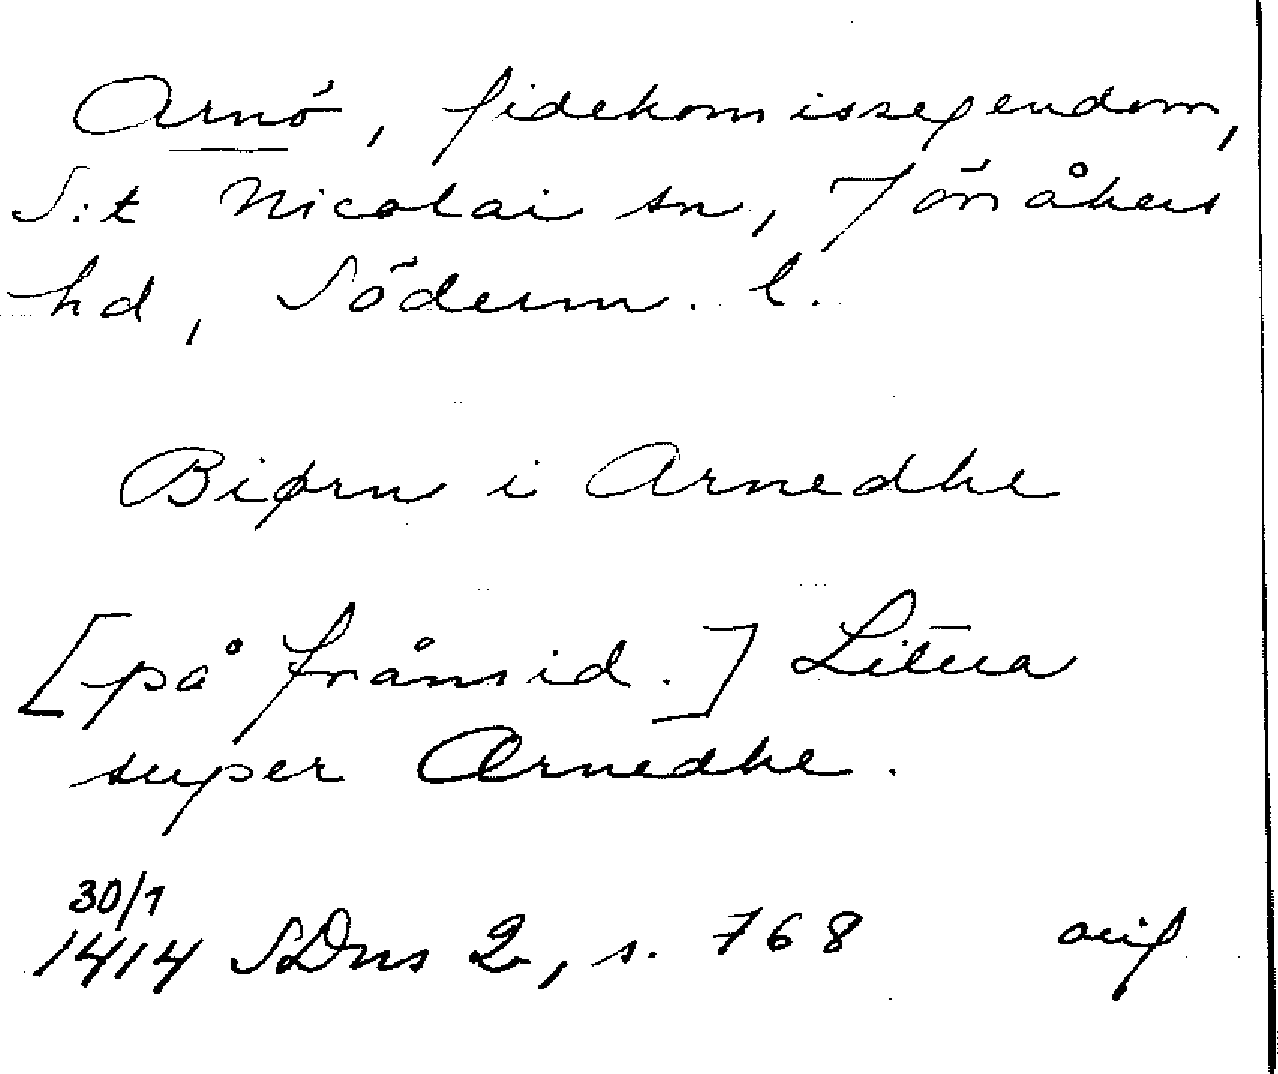 Arnö, fidekomissegendom,
S:t Nicolai sn, Jönåkers
hd, Söderm. l.
Biørn i Arnedhe
[på frånsid.] Litera
super Arnedhe.
30/1
1414 SDns 2, s. 768